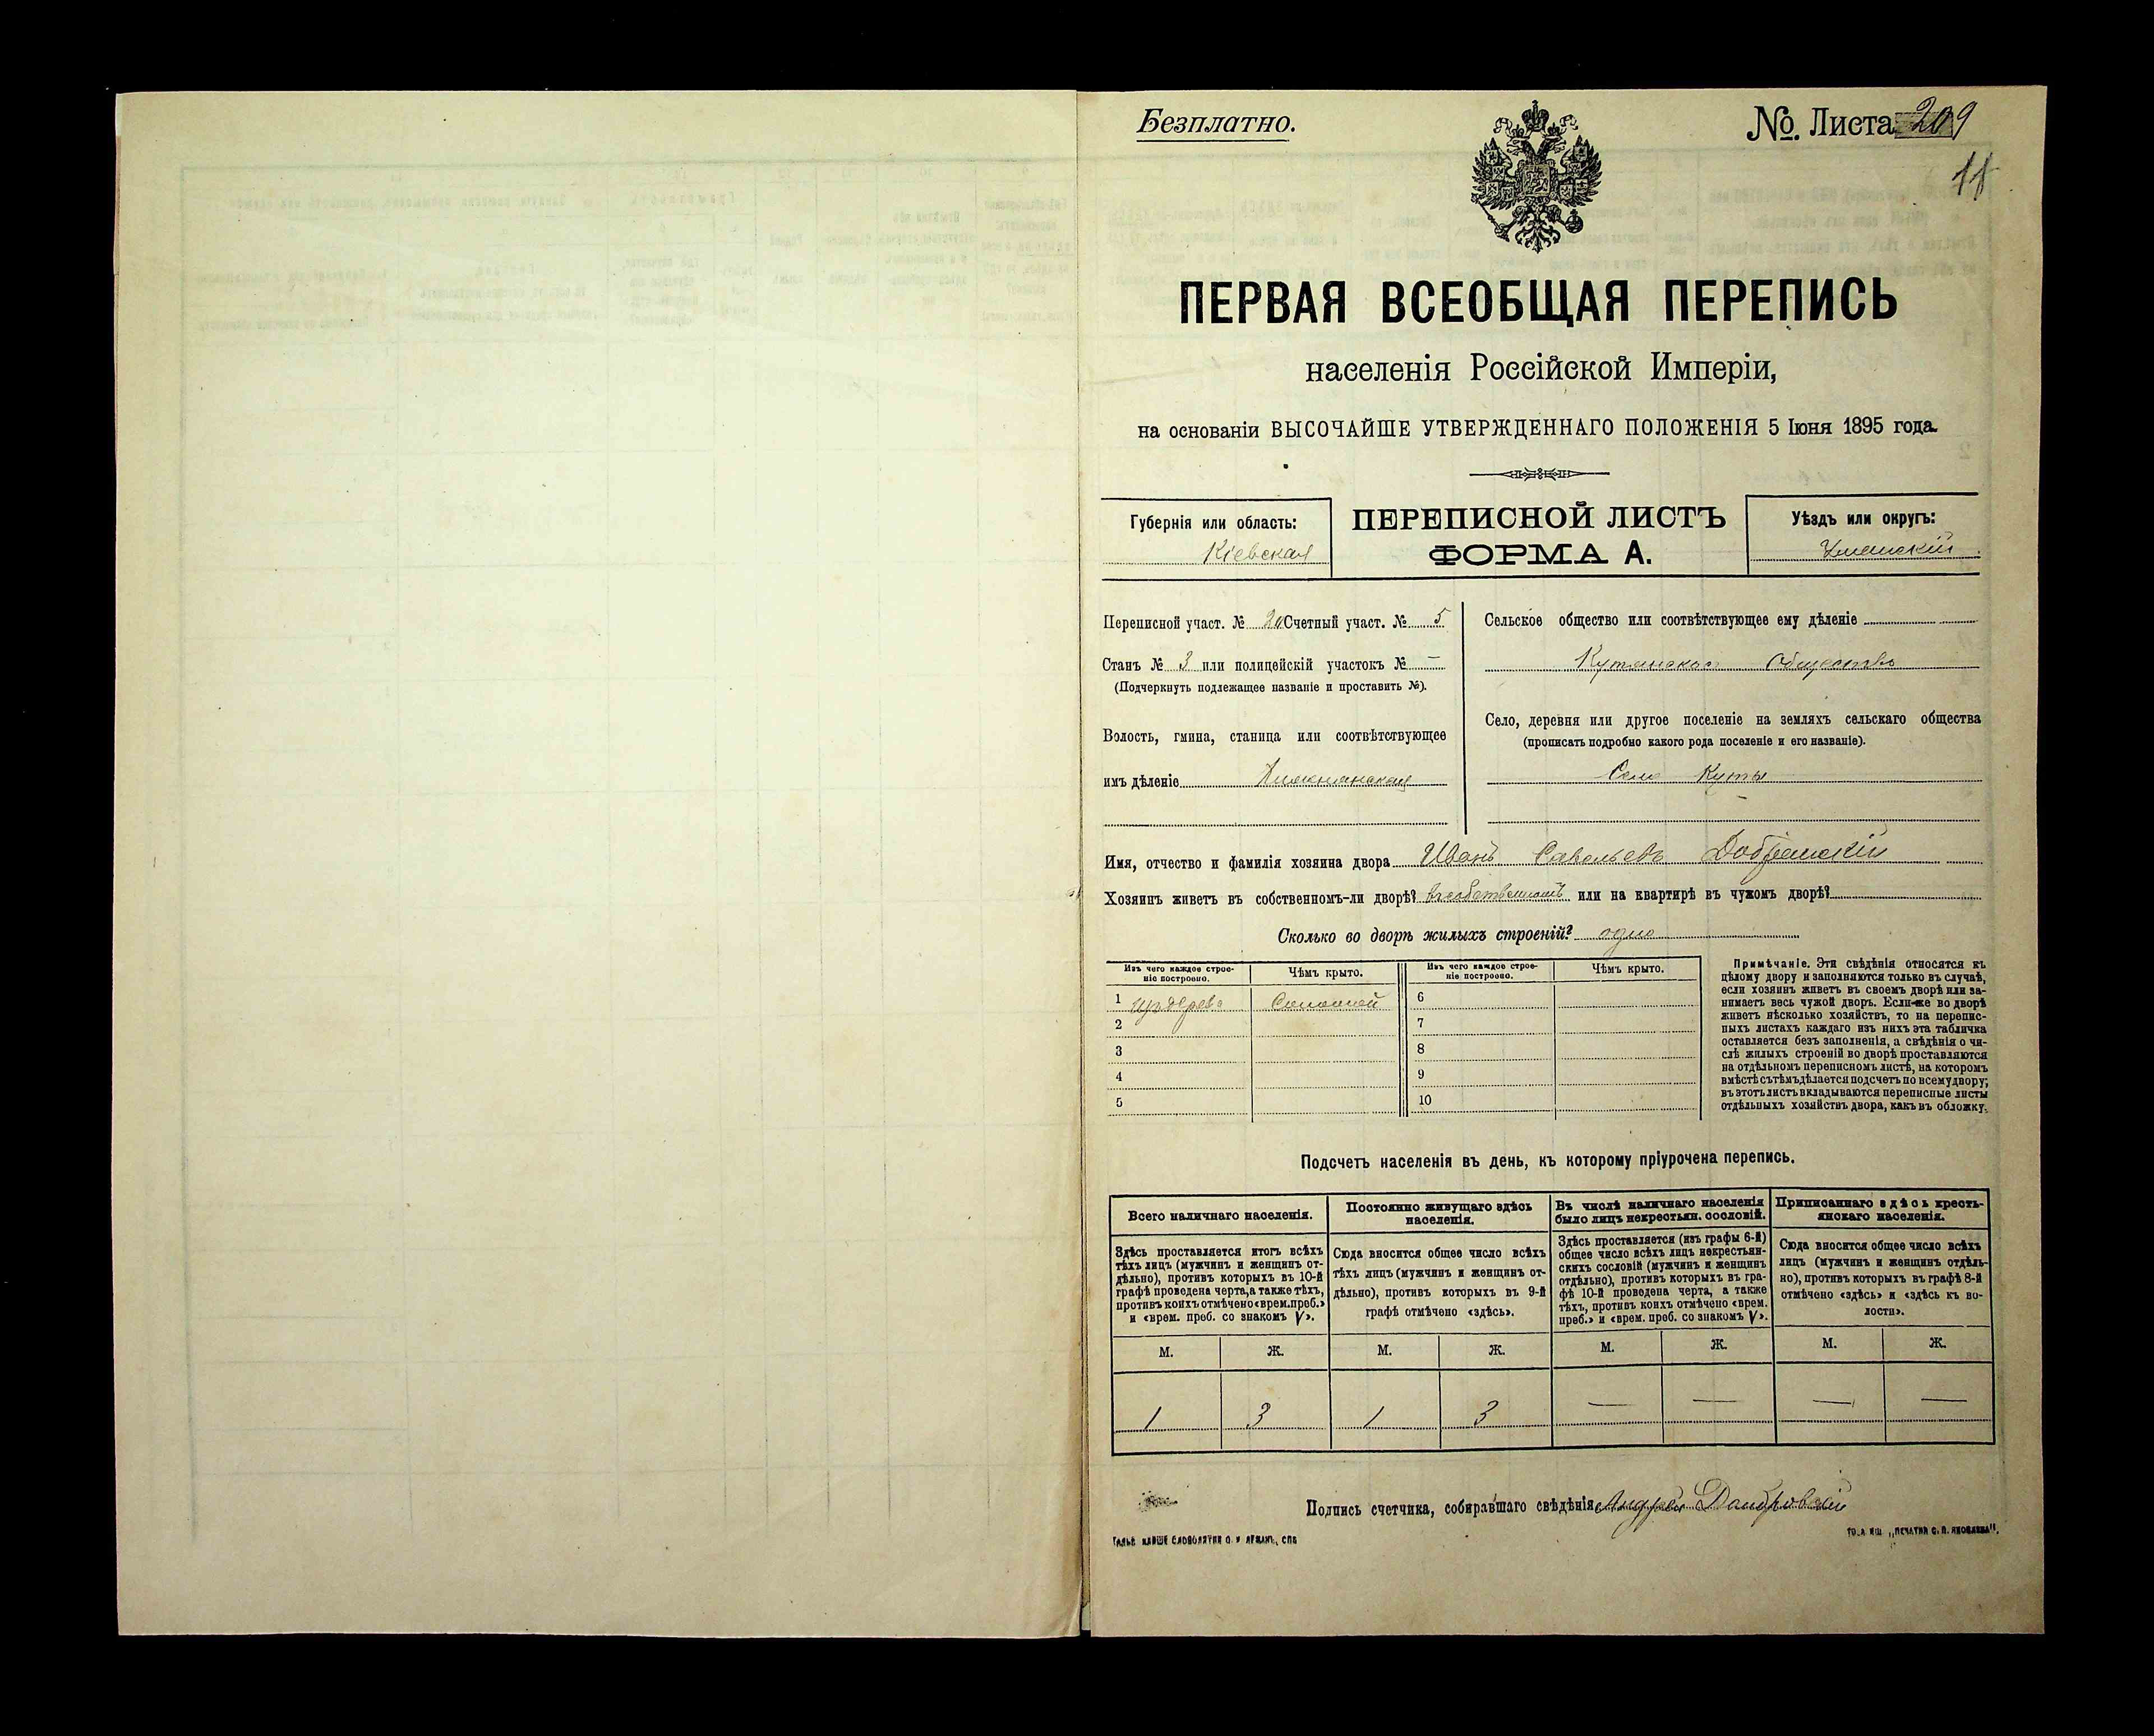 Безплатно.
№. Листа 209
11
ПЕРВАЯ ВСЕОБЩАЯ ПЕРЕПИСЬ
населенія Россійской Имперіи,
на основаніи ВЫСОЧАЙШЕ УТВЕРЖДЕННАГО ПОЛОЖЕНІЯ 5 Іюня 1895 года.
Губернія или область:
Кіевская
ПЕРЕПИСНОЙ ЛИСТЪ
ФОРМА А.
Уѣздъ или округъ:
Уманскій
Переписной участ. № 20 Счетный участ. № 5
Станъ № 3 или полицейскій участокъ № —
(Подчеркнуть подлежащее названіе и проставить №).
Волость, гмина, станица или соотвѣтствующее
имъ дѣленіе
Сельское общество или соотвѣтствующее ему дѣленіе
Общество
Село, деревня или другое поселеніе на земляхъ сельскаго общества
(прописать подробно какого рода поселеніе и его названіе).
Село Куты
Имя, отчество и фамилія хозяина двора Иванъ Савельевъ
Хозяинъ живетъ въ собственномъ-ли дворѣ? въ собственномъ или на квартирѣ въ чужомъ дворѣ?
Сколько во дворѣ жилыхъ строеній? одно
Изъ чего каждое строеніе построено.
Чѣмъ крыто.
Изъ чего каждое строеніе построено.
Чѣмъ крыто.
1 изъ дерева Соломой 6
2 7
3 8
4 9
5 10
Примѣчаніе. Эти свѣдѣнія относятся къ
цѣлому двору и заполняются только въ случаѣ,
если хозяинъ живетъ въ своемъ дворѣ или за-
нимаетъ весь чужой дворъ. Если-же во дворѣ
живетъ нѣсколько хозяйствъ, то на перепис-
ныхъ листахъ каждаго изъ нихъ эта табличка
оставляется безъ заполненія, а свѣдѣнія о чи-
слѣ жилыхъ строеній во дворѣ проставляются
на отдѣльномъ переписномъ листѣ, на которомъ
вмѣстѣ съ тѣмъ дѣлается подсчетъ по всему двору;
въ этотъ листъ вкладываются переписные листы
отдѣльныхъ хозяйствъ двора, какъ въ обложку.
Подсчетъ населенія въ день, къ которому пріурочена перепись.
Всего наличнаго населенія.
Постоянно живущаго здѣсь
населенія.
Въ числѣ наличнаго населенія
было лицъ некрестьян. сословій.
Приписаннаго здѣсь кресть-
янскаго населенія.
Здѣсь проставляется итогъ всѣхъ
тѣхъ лицъ (мужчинъ и женщинъ от-
дѣльно), противъ которыхъ въ 10-й
графѣ проведена черта, а также тѣхъ,
противъ коихъ отмѣчено «врем. преб.»
и «врем. преб. со знакомъ V».
Сюда вносится общее число всѣхъ
тѣхъ лицъ (мужчинъ и женщинъ от-
дѣльно), противъ которыхъ въ 9-й
графѣ отмѣчено «здѣсь».
Здѣсь проставляется (изъ графы 6-й)
общее число всѣхъ лицъ некрестьян-
скихъ сословій (мужчинъ и женщинъ
отдѣльно), противъ которыхъ въ гра-
фѣ 10-й проведена черта, а также
тѣхъ, противъ коихъ отмѣчено «врем.
преб.» и «врем. преб. со знакомъ V».
Сюда вносится общее число всѣхъ
лицъ (мужчинъ и женщинъ отдѣль-
но), противъ которыхъ въ графѣ 8-й
отмѣчено «здѣсь» и «здѣсь къ во-
лости».
М. Ж. М. Ж. М. Ж. М. Ж.
1 3 1 3 — — — —
Подпись счетчика, собиравшаго свѣдѣнія Андрей Домбровскій